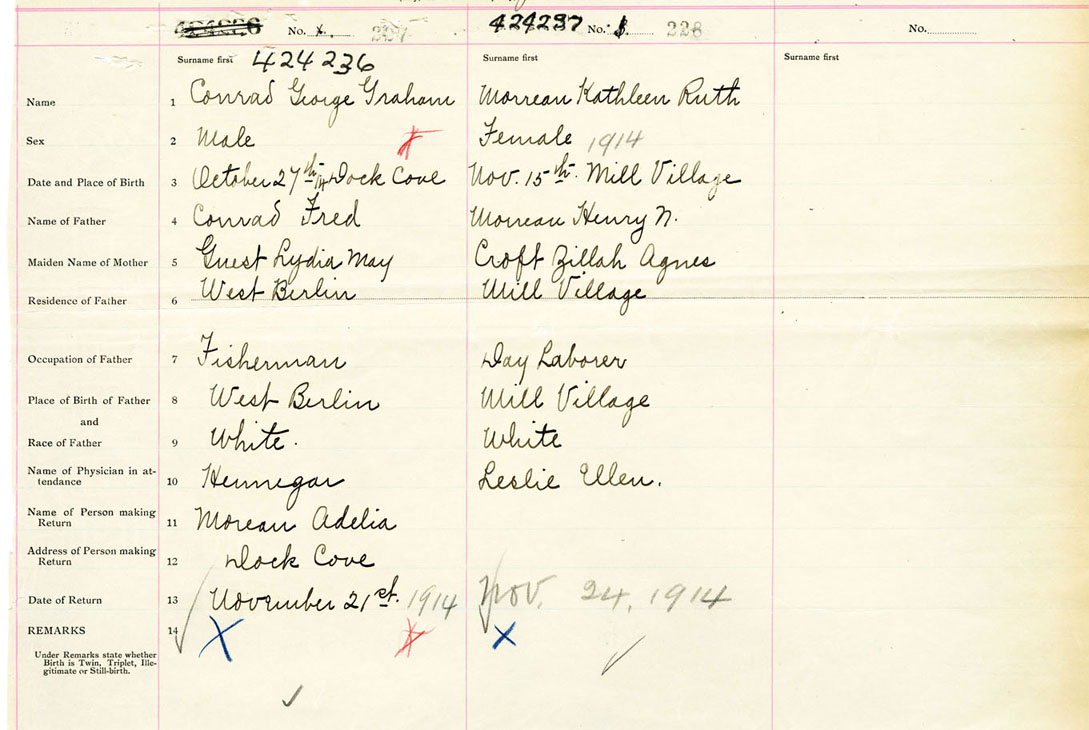 No. 227 424237 No. 228 No.
Surname first 424236 Surname first Surname first
Name 1 Conrad George Graham Morreau Kathleen Ruth
Sex 2 Male Female 1914
Date and Place of Birth 3 October 27th Dock Cove Nov. 15th. Mill Village
Name of Father 4 Conrad Fred Morreau Henry N.
Maiden Name of Mother 5 Guest Lydia May Croft Zillah Agnes
Residence of Father 6 West Berlin Mill Village
Occupation of Father 7 Fisherman Day Laborer
Place of Birth of Father 8 West Berlin Mill Village
and
Race of Father 9 White. White
Name of Physician in at-
tendance 10 Hennegar Leslie Ellen.
Name of Person making
Return 11 Moreau Adelia
Address of Person making
Return 12 Dock Cove
Date of Return 13 November 21st. 1914 Nov. 24, 1914
REMARKS 14
Under Remarks state whether
Birth is Twin, Triplet, Ille-
gitimate or Still-birth.